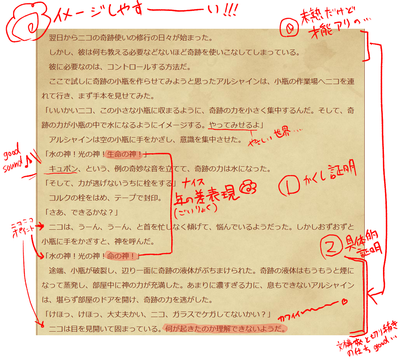 イメージしやすーーい!!!
① 未熟だけど
才能アリの…
翌日からニコの奇跡使いの修行の日々が始まった。
しかし、彼は何も教える必要などないほど奇跡を使いこなしてしまっている。
彼に必要なのは、コントロールする方法だ。
ここで試しに奇跡の小瓶を作らせてみようと思ったアルシャインは、小瓶の作業場へニコを連れて行き、まず手本を見せてみた。
「いいかいニコ、この小さな小瓶に収まるように、奇跡の力を小さく集中するんだ。そして、奇跡の力が小瓶の中で水になるようにイメージする。やってみせるよ」
やさしい世界…
アルシャインは空の小瓶に手をかざし、意識を集中させた。
「水の神!光の神!生命の神!」
good
sound
キュポン、という、例の奇妙な音を立てて、奇跡の力は水になった。
「そして、力が逃げないうちに栓をする」
ナイス
年の差表現
(ごいりょく)
① かくし証明
コルクの栓をはめ、テープで封印。
「さあ、できるかな?」
ニコニコ
ポイント
ニコは、うーん、うーん、と首を忙しなく傾げて、悩んでいるようだった。しかしおずおずと小瓶に手をかざすと、神を呼んだ。
② 具体的
証明
「水の神!光の神!命の神!」
途端、小瓶が破裂し、辺り一面に奇跡の液体がぶちまけられた。奇跡の液体はもうもうと煙になって蒸発し、部屋中に神の力が充満した。あまりに濃すぎる力に、息もできないアルシャインは、堪らず部屋のドアを開け、奇跡の力を逃がした。
「けほっ、けほっ、大丈夫かい、ニコ、ガラスでケガしてないかい?」
カワイィー
ニコは目を見開いて固まっている。何が起きたのか理解できないようだ。
good…